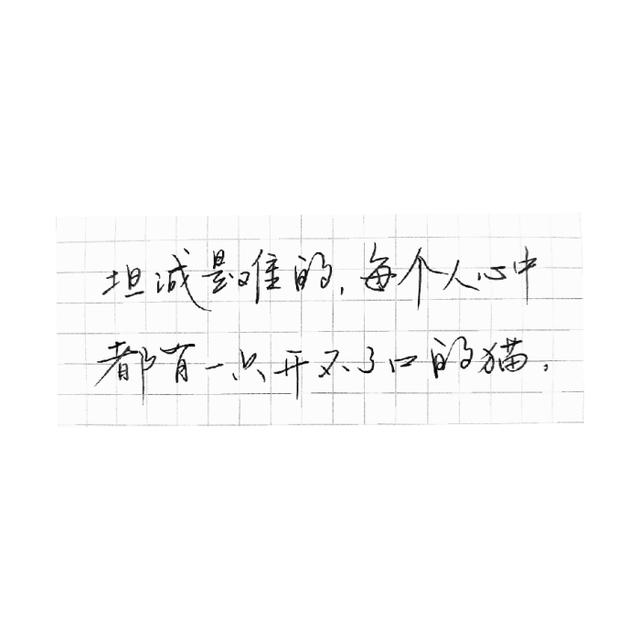 坦诚是难的,每个人心中
都有一只开不了口的猫.